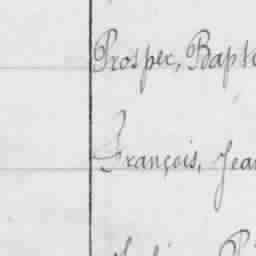 Prosper, Bapt
François, Jea